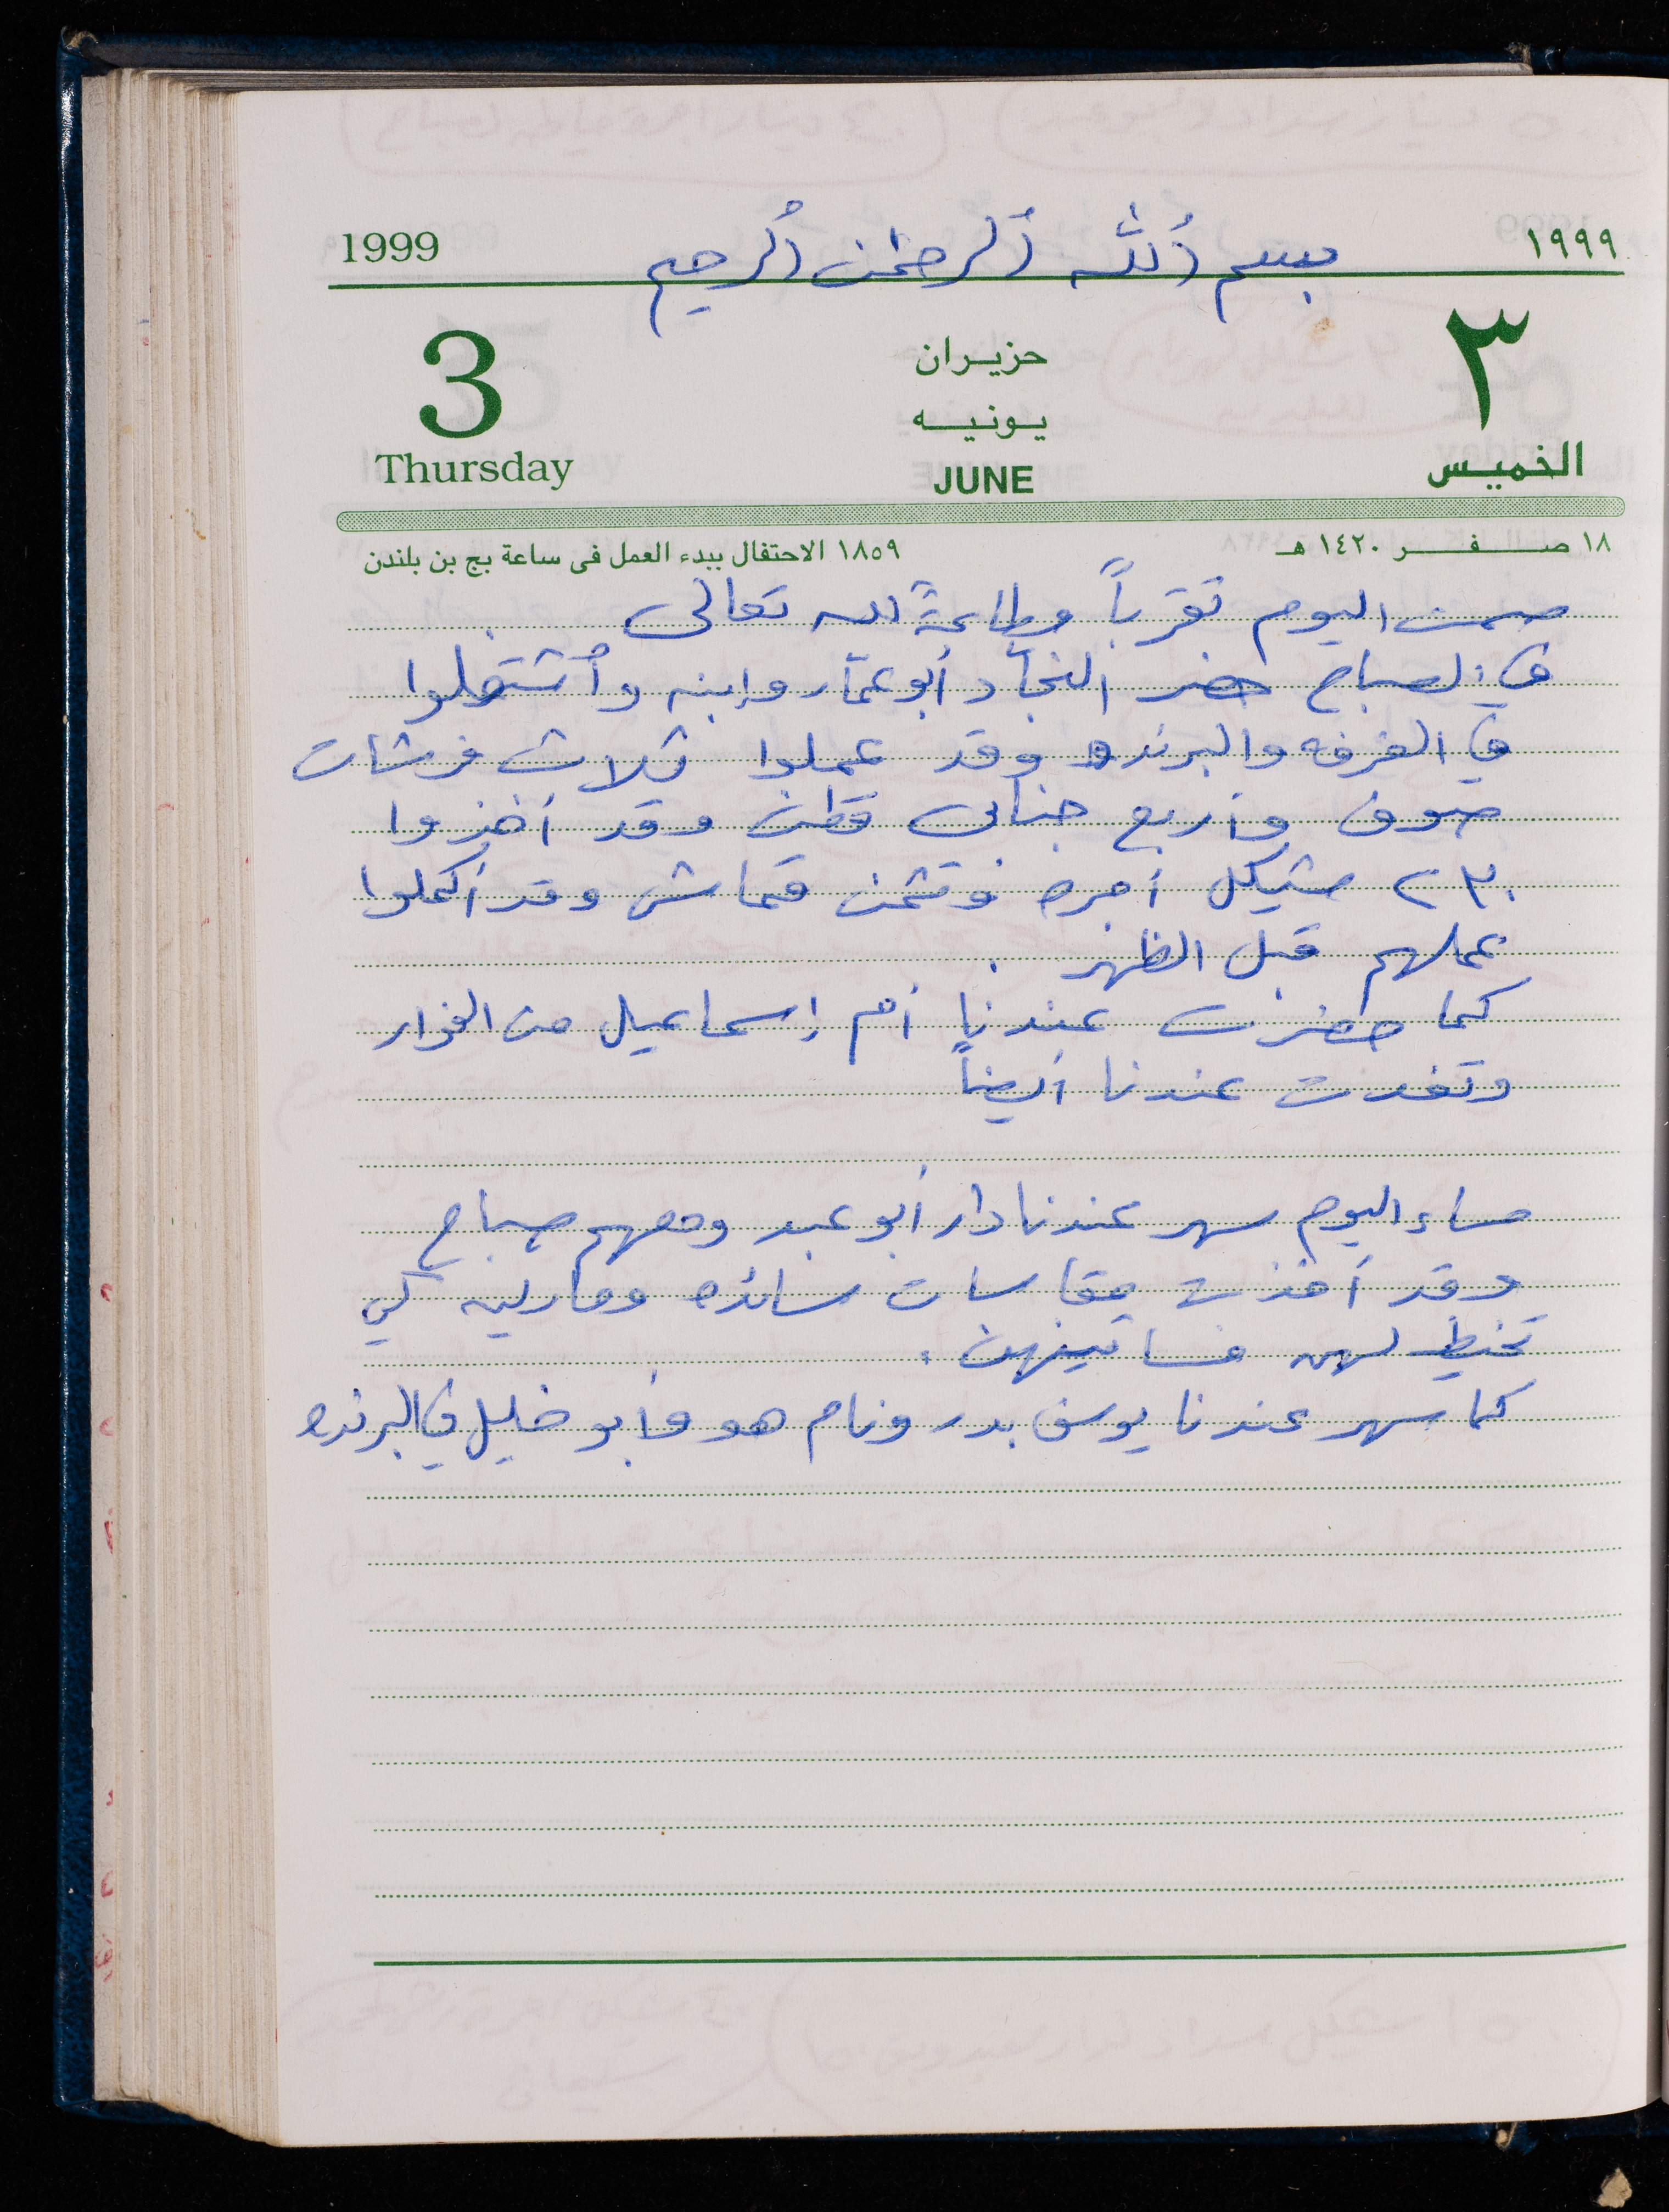 1999
بسم ٱلله ٱلرحمٰن ٱلرحيم
١٩٩٩
3
حزيران
٣
يونيه
Thursday
JUNE
الخميس
١٨ صفر ١٤٢٠ هـ
١٨٥٩ الاحتفال ببدء العمل فى ساعة بج بن بلندن
صمت اليوم تقرباً وطاعةً لله تعالى
في الصباح حضر النجاد أبو عمار وابنه وٱشتغلوا
في الغرفه والبرنده وقد عملوا ثلاث فرشات
صوف وأربع جنابي قطن وقد أخذوا
٢٣٠ شيكل أجره وثمن قماش وقد أكملوا
عملهم قبل الظهر .
كما حضرت عندنا أم إسماعيل من الفوار
وتغدت عندنا أيضاً
مساء اليوم سهر عندنا دار أبو عبد ومعهم صباح
وقد أخذت مقاسات سائده وماريه كي
تخيط لهن فساتينهن .
كما سهر عندنا يوسف بدر ونام هو وأبو خليل في البرنده